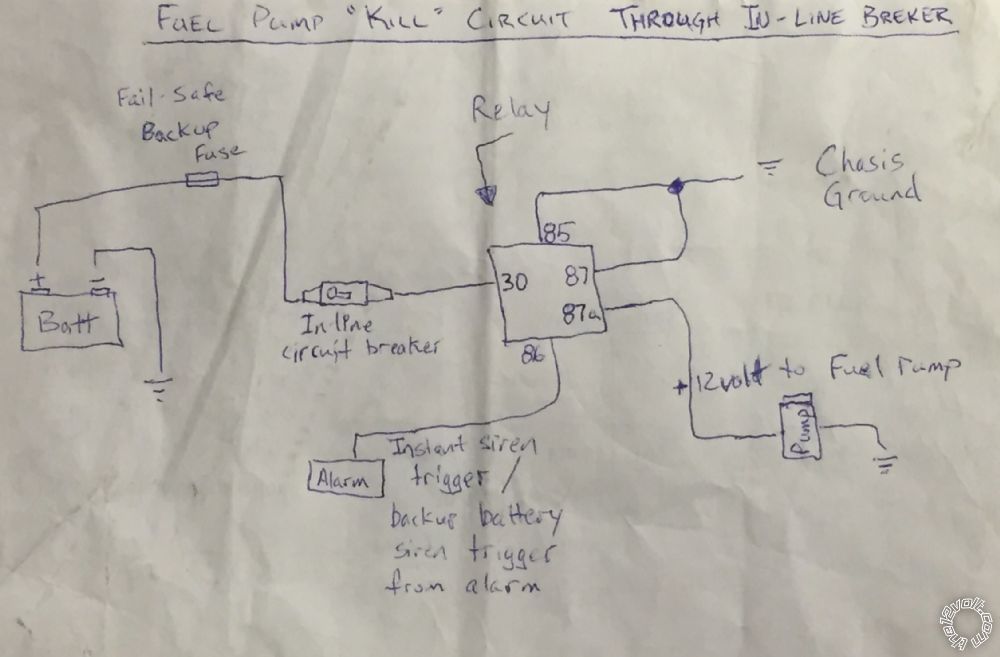 FUEL PUMP "KILL" CIRCUIT THROUGH IN-LINE BREKER
Fail-Safe
Backup
Fuse
Relay
Chasis
Ground
85
30
87
87a
86
+
-
Batt
In-line
circuit breaker
+12volt to Fuel Pump
Pump
Alarm
Instant siren
trigger /
backup battery
siren trigger
from alarm
the12volt.com